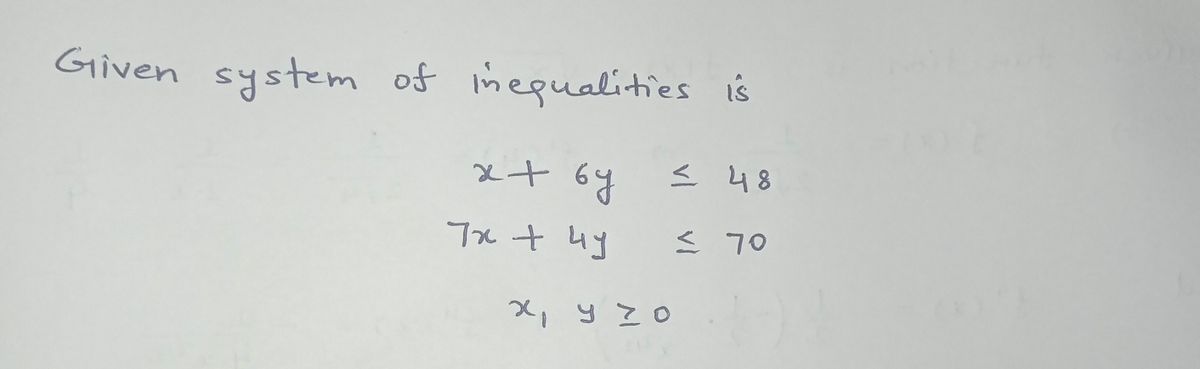 Given system of inequalities is
x + 6y ≤ 48
7x + 4y ≤ 70
x, y ≥ 0